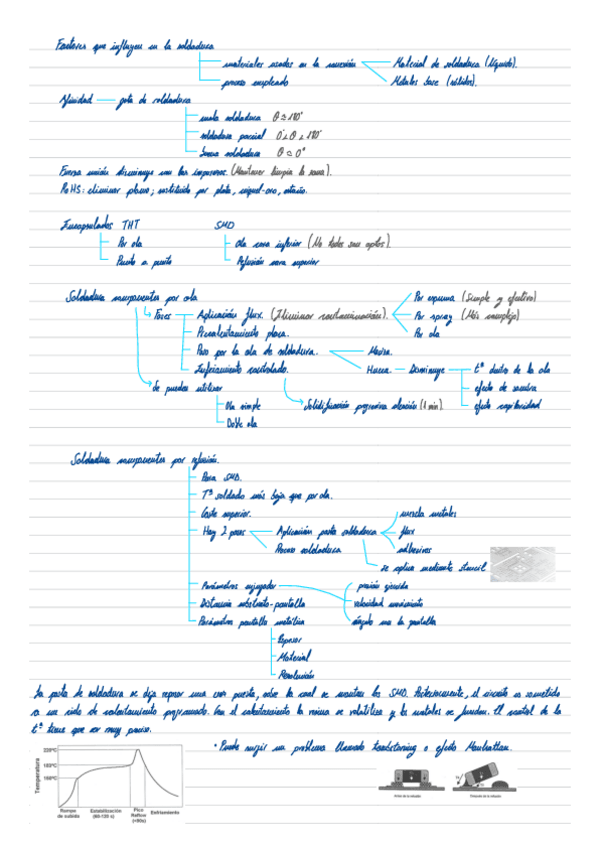 Factores que influyen en la soldadura
materiales usados en la conexión
Material de soldadura (líquido).
Metales base (sólidos).
proceso empleado
Afinidad — gota de soldadura
mala soldadura θ ≈ 180°
soldadura parcial 0° < θ < 180°
buena soldadura θ ≈ 0°
Fuerza unión disminuye con las impurezas. (Mantener limpia la zona).
RoHS: eliminar plomo; sustituido por plata, níquel-oro, estaño.
Encapsulados THT SMD
Por ola
Ola cara inferior (No todos son aptos).
Punto a punto
Refusión cara superior
Soldadura componentes por ola
Fases
Aplicación flux. (Eliminar contaminación).
Por espuma (Simple y efectivo)
Por spray (Más complejo)
Por ola
Precalentamiento placa.
Paso por la ola de soldadura.
Maciza.
Hueca — Disminuye
tª dentro de la ola
efecto de sombra
efecto capilaridad
Enfriamiento controlado.
Solidificación progresiva aleación (1 min).
Se pueden utilizar
Ola simple
Doble ola
Soldadura componentes por refusión.
Para SMD.
Tª soldado más baja que por ola.
Coste superior.
Hay 2 pasos
Aplicación pasta soldadura
mezcla metales
flux
adhesivos
Proceso soldadura
se aplica mediante stencil
Parámetros enjugador
presión ejercida
velocidad movimiento
ángulo con la pantalla
Distancia substrato-pantalla
Parámetros pantalla metálica
Espesor
Material
Resolución
La pasta de soldadura se deja reposar una vez puesta, sobre la cual se montan los SMD. Posteriormente, el circuito es sometido
a un ciclo de calentamiento programado. Con el calentamiento la resina se volatiliza y los metales se funden. El control de la
tª tiene que ser muy preciso.
• Puede surgir un problema llamado tombstoning o efecto Manhattan.
Temperatura
220ºC
183ºC
150ºC
Rampa de subida
Estabilización (60-120 s)
Pico Reflow (<90s)
Enfriamiento
Antes de la refusión
Después de la refusión